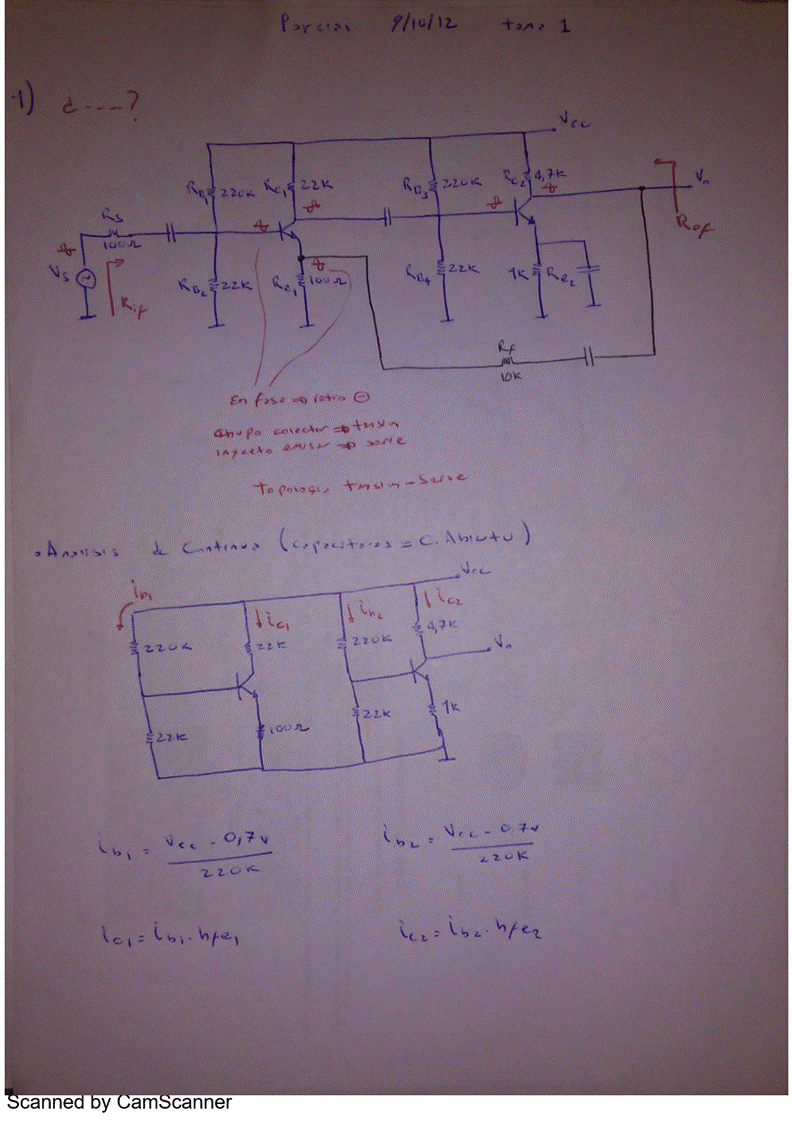 Parcial 9/10/12 tema 1
1) ¿ ---- ?
Vcc
RB1 220K
RC1 22K
RB3 220K
RC2 4,7K
Vo
Rof
Rs
100Ω
Vs
Rif
RB2 22K
Re1 100Ω
RB4 22K
1K Re2
Rf
10K
En fase ⇒ retro ⊖
Chupo colector ⇒ tensión
inyecto emisor ⇒ serie
Topología tensión - Serie
• Análisis de Continua (Capacitores = C. Abierto)
Vcc
ib1
ic1
ib2
ic2
220K
22K
220K
4,7K
Vo
22K
100Ω
22K
1K
ib1 = Vcc - 0,7v / 220K
ib2 = Vcc - 0.7v / 220K
ic1 = ib1 . hfe1
ic2 = ib2 . hfe2
Scanned by CamScanner